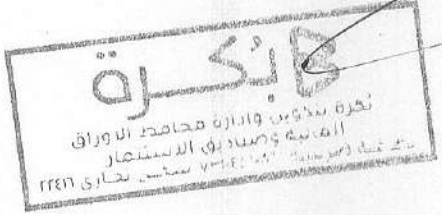 بُكرة B
بكرة بتكوين وإدارة محافظ الأوراق
المالية وصناديق الاستثمار
سجل تجاري ٢٢٤١٦